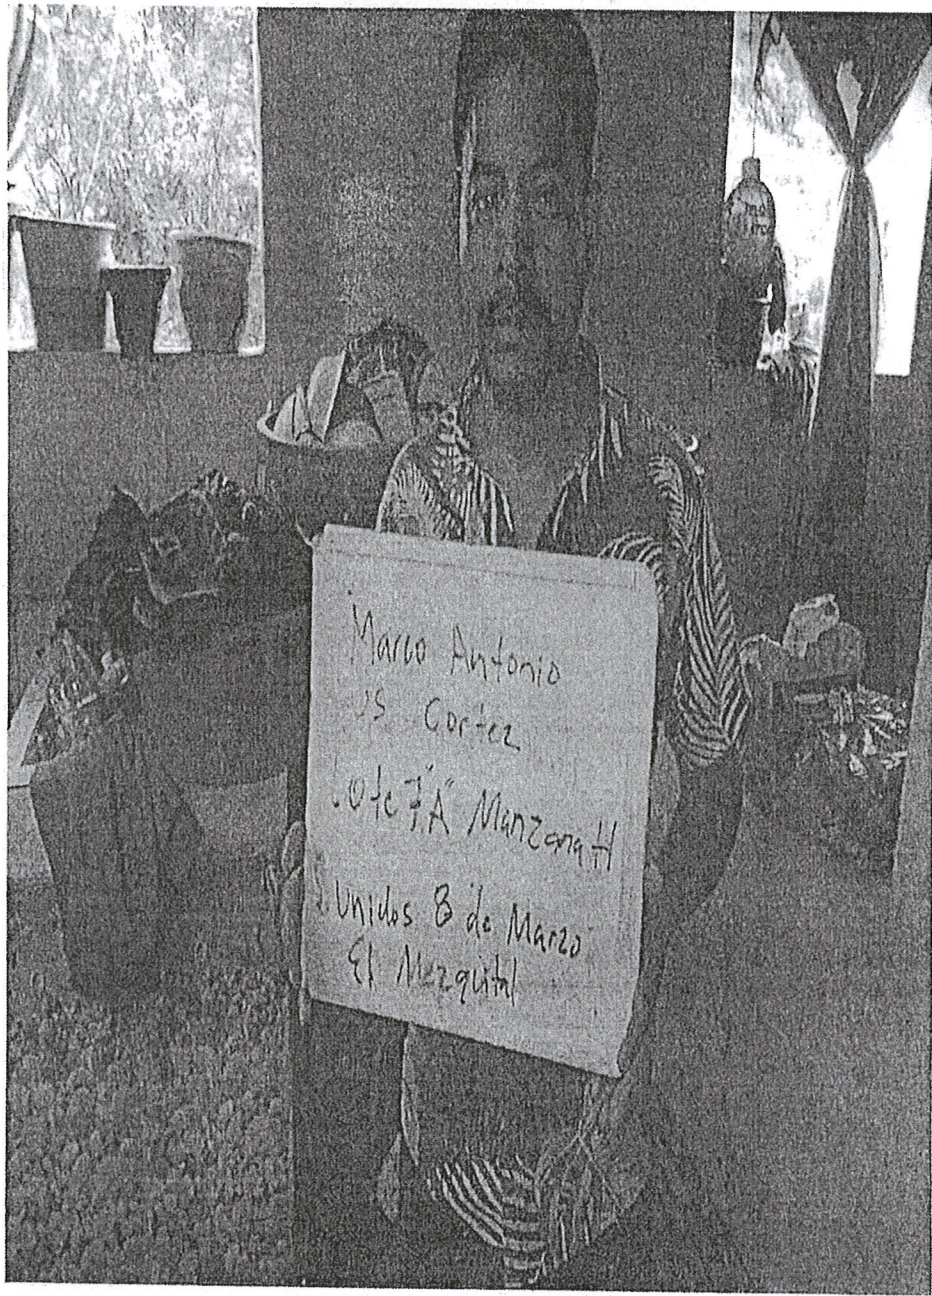 Marco Antonio
Cortez
Lote 7"A" Manzana H
Unidos 8 de Marzo
El Mezquital